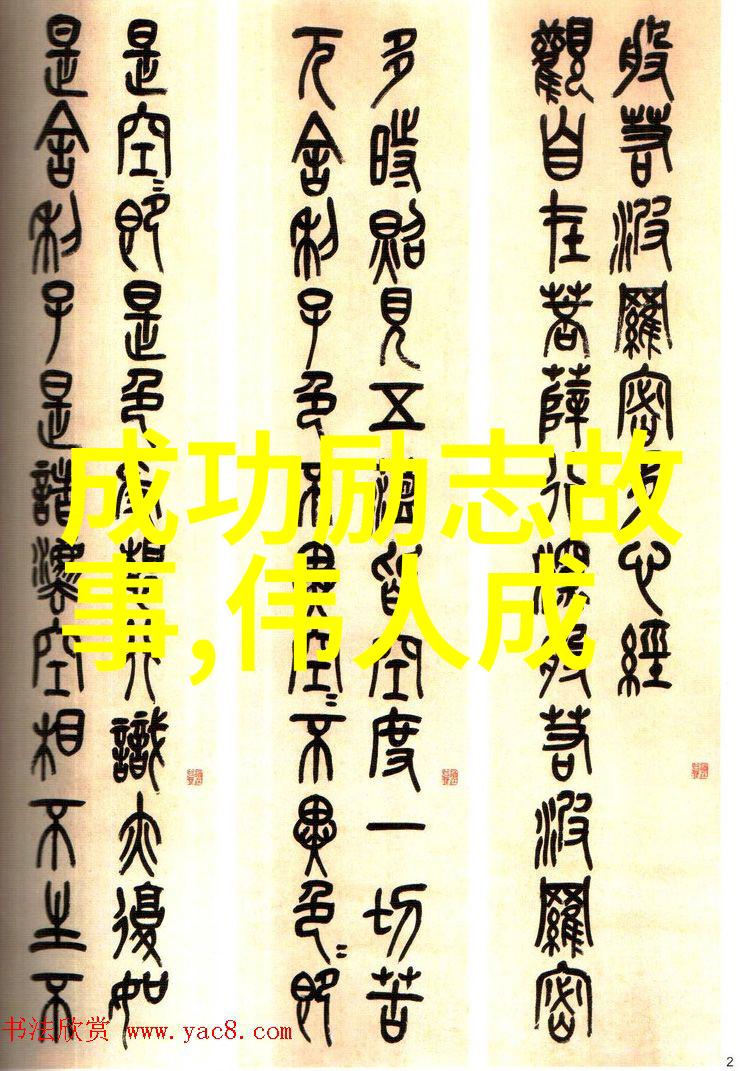 般若波羅密多心經
觀自在菩薩行深般若波羅密
多時照見五蘊皆空度一切苦
厄舍利子色不異空〻不異色〻即
是空〻即是色受想行識亦復如
是舍利子是諸灋空相不生不
成功励志故
事,伟人成
书法欣赏 www.yac8.com
2